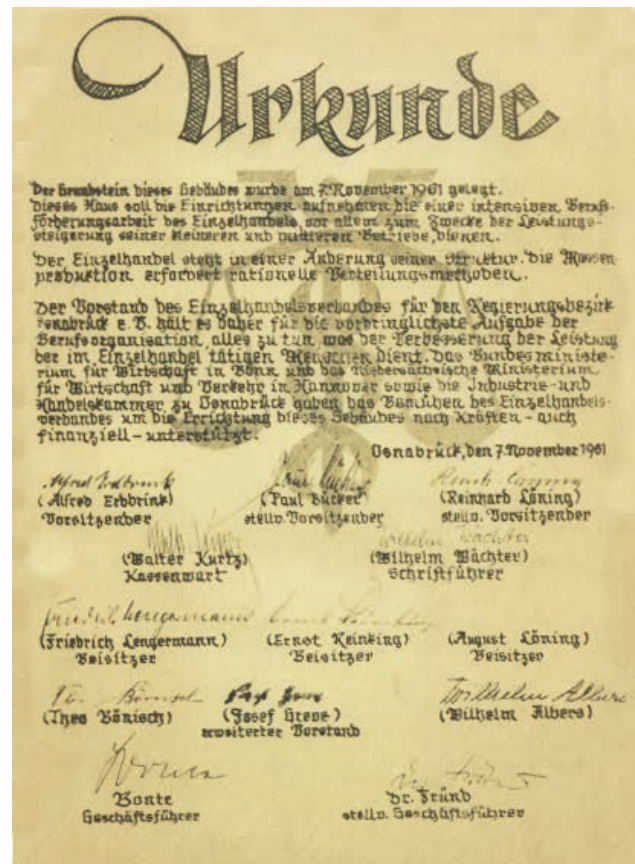 Urkunde
Der Grundstein dieses Gebäudes wurde am 7. November 1961 gelegt.
Dieses Haus soll die Einrichtungen aufnehmen die einer intensiven Berufs-
förderungsarbeit des Einzelhandels, vor allem zum Zwecke der Leistungs-
steigerung seiner kleineren und mittleren Betriebe, dienen.
Der Einzelhandel steht in einer Änderung seiner Struktur. Die Massen
produktion erfordert rationelle Verteilungsmethoden.
Der Vorstand des Einzelhandelsverbandes für den Regierungsbezirk
Osnabrück e. V. hält es daher für die vordringlichste Aufgabe der
Berufsorganisation, alles zu tun was der Verbesserung der Leistung
der im Einzelhandel tätigen Menschen dient. Das Bundesministe-
rium für Wirtschaft in Bonn und das Niedersächsische Ministerium
für Wirtschaft und Verkehr in Hannover sowie die Industrie- und
Handelskammer zu Osnabrück haben das Bemühen des Einzelhandels-
verbandes um die Errichtung dieses Gebäudes nach Kräften - auch
finanziell - unterstützt.
Osnabrück, den 7. November 1961
(Alfred Erdbrink) (Paul Bücker) (Reinhard Löning)
Vorsitzender stellv. Vorsitzender stellv. Vorsitzender
Wilhelm Wächter
(Walter Kurtz) (Wilhelm Wächter)
Kassenwart Schriftführer
Friedrich Lengermann
(Friedrich Lengermann) (Ernst Keinking) (August Löning)
Beisitzer Beisitzer Beisitzer
Wilhelm Albers
(Theo Bönisch) (Josef Greve) (Wilhelm Albers)
erweiterter Vorstand
Bonte Dr. Fründ
Geschäftsführer stellv. Geschäftsführer